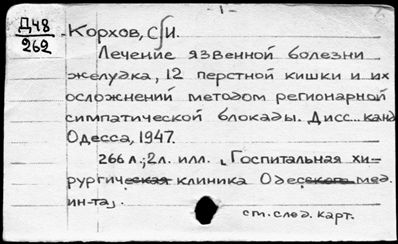 - 1 -
Д48
262
Корхов, С.И.
Лечение язвенной болезни
желудка, 12 перстной кишки и их
осложнений методом регионарной
симпатической блокады. Дисс... канд
Одесса, 1947.
266 л.; 2л. илл. „Госпитальная хи-
рургическая клиника Одесского мед.
ин-та„.
см. след. карт.